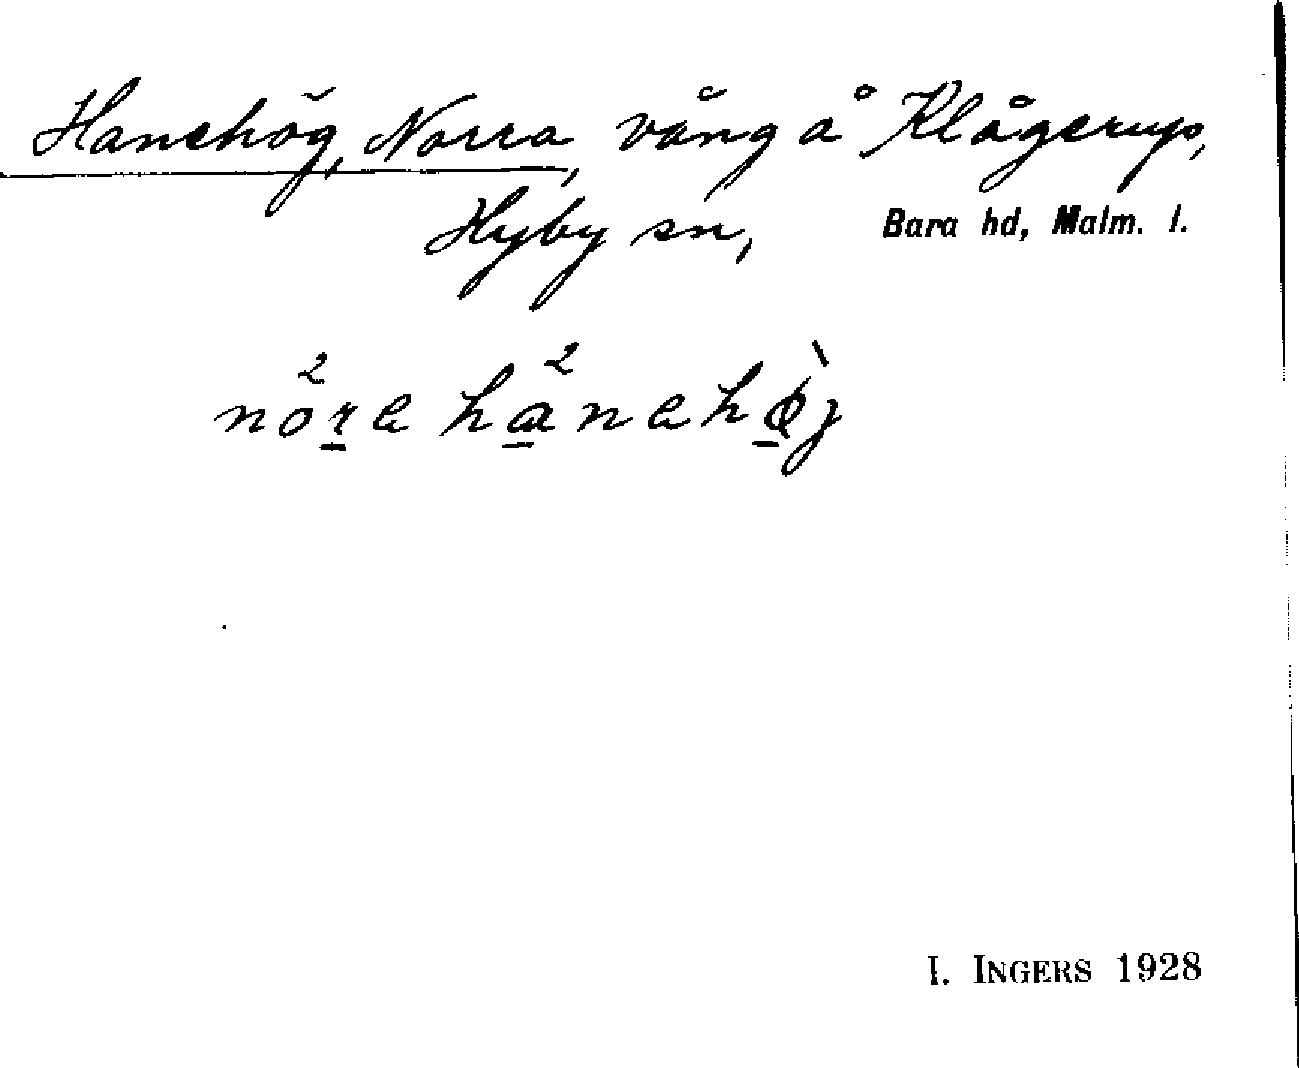 Hanehög, Norra, vång å Klågerup,
Hyby sn, Bara hd, Malm. l.
I. INGERS 1928